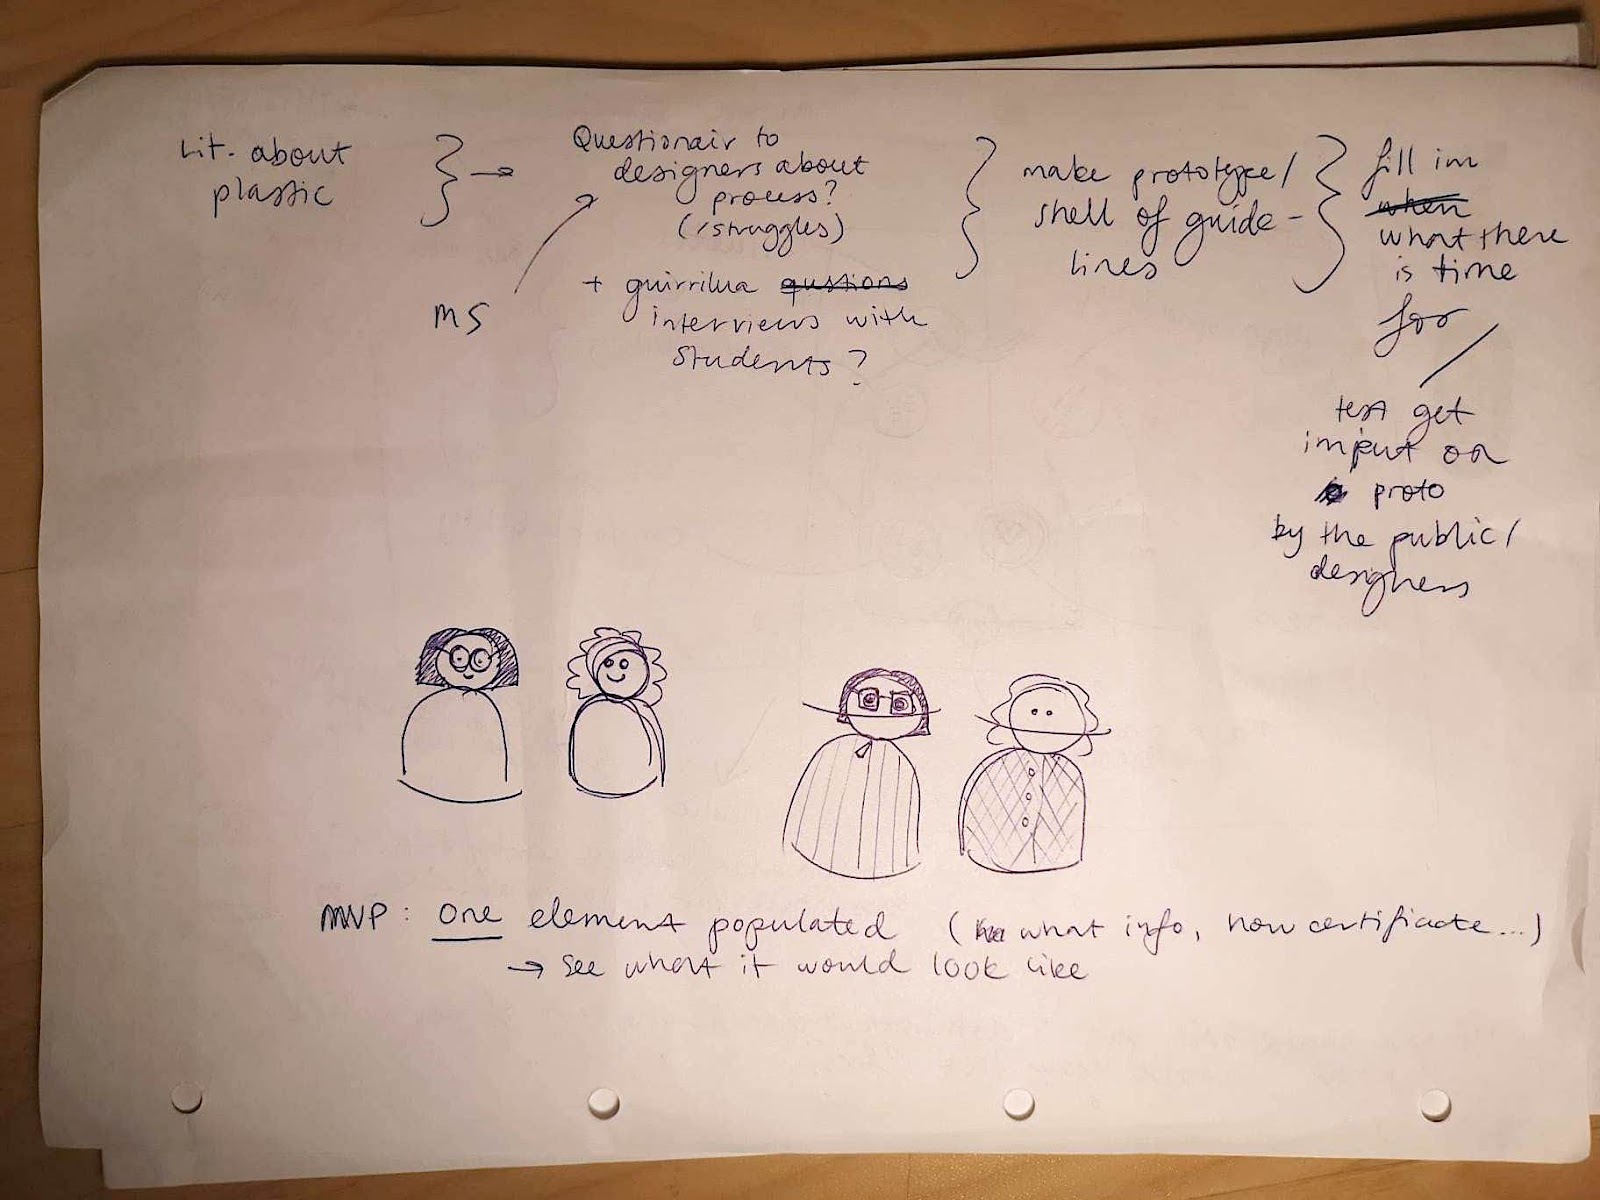 Lit. about
plastic
Questionair to
designers about
process?
(/struggles)
+ guirrilua qustions
interviews with
students?
MS
make prototype/
shell of guide-
lines
fill in
when
what there
is time
for
test get
imput on
proto
by the public/
designers
MVP: one element populated (what info, how certificate...)
→ see what it would look like